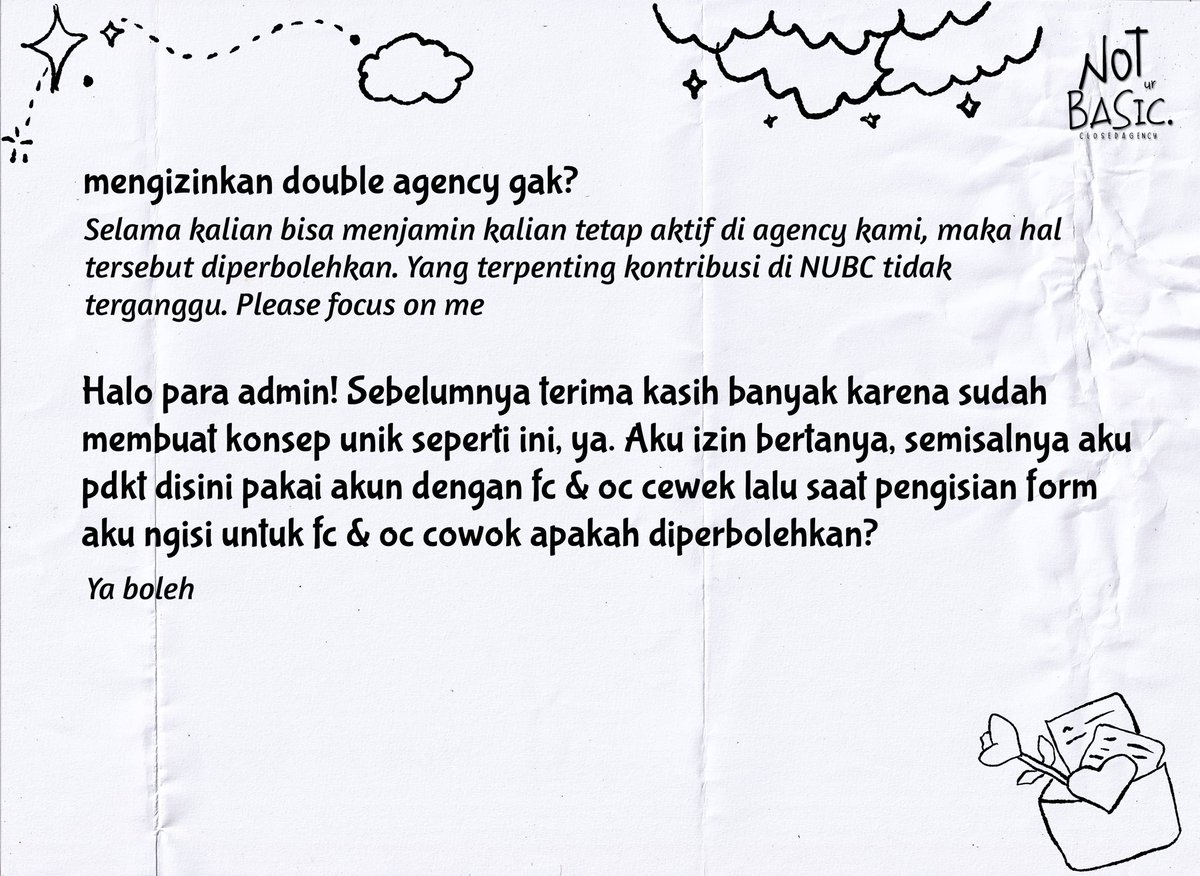 NOT
ur
BASIC.
CLOSED AGENCY
mengizinkan double agency gak?
Selama kalian bisa menjamin kalian tetap aktif di agency kami, maka hal
tersebut diperbolehkan. Yang terpenting kontribusi di NUBC tidak
terganggu. Please focus on me
Halo para admin! Sebelumnya terima kasih banyak karena sudah
membuat konsep unik seperti ini, ya. Aku izin bertanya, semisalnya aku
pdkt disini pakai akun dengan fc & oc cewek lalu saat pengisian form
aku ngisi untuk fc & oc cowok apakah diperbolehkan?
Ya boleh